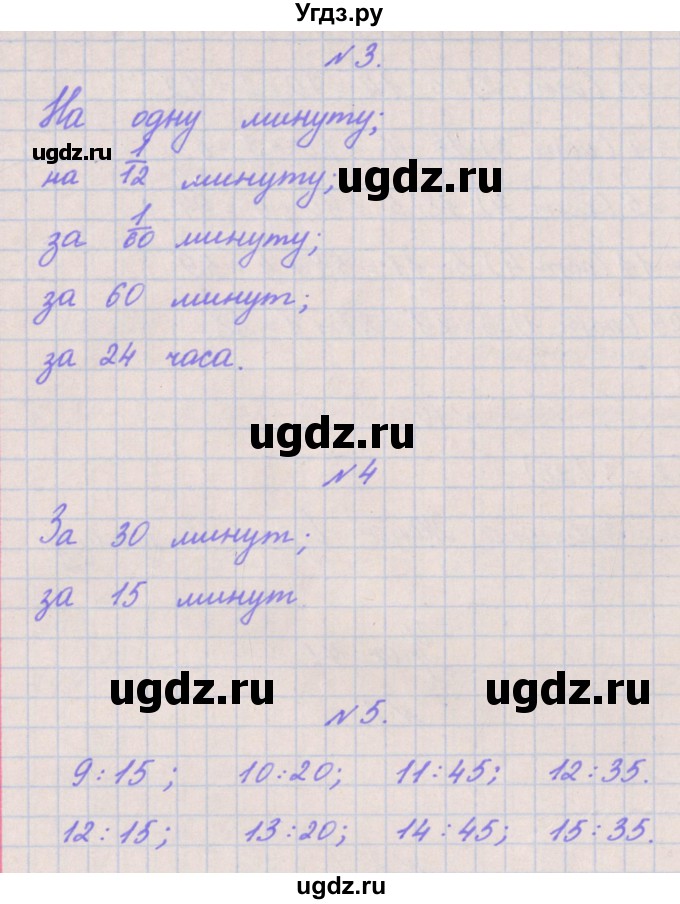 Угдз.ру
№3.
На одну минуту;
на 1/12 минуту;
за 1/60 минуту;
за 60 минут;
за 24 часа.
№4
За 30 минут;
за 15 минут
№5.
9:15; 10:20; 11:45; 12:35.
12:15; 13:20; 14:45; 15:35.
ugdz.ru
ugdz.ru
ugdz.ru
ugdz.ru
ugdz.ru
ugdz.ru